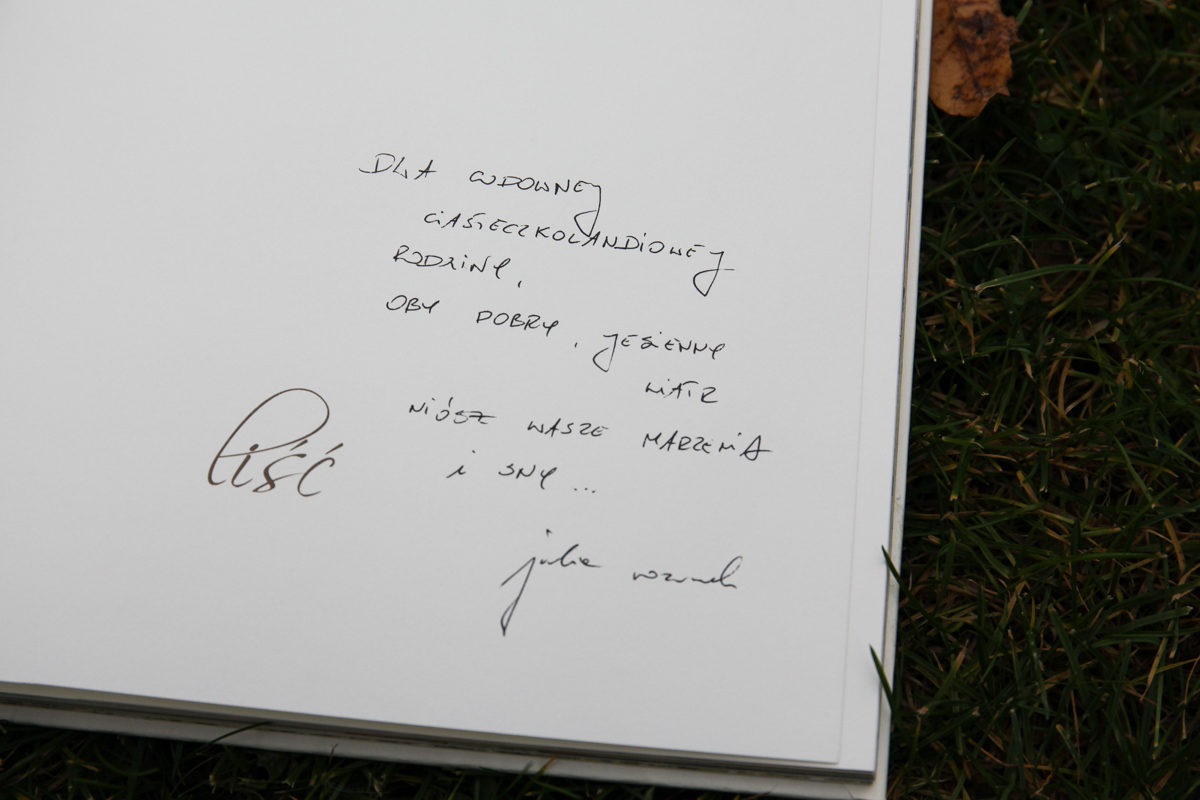 DLA CUDOWNEJ
CIASTECZKOLANDIOWEJ
RODZINY,
OBY DOBRY, JESIENNY
WIATR
NIÓSŁ WASZE MARZENIA
i SNY ...
liść
julia